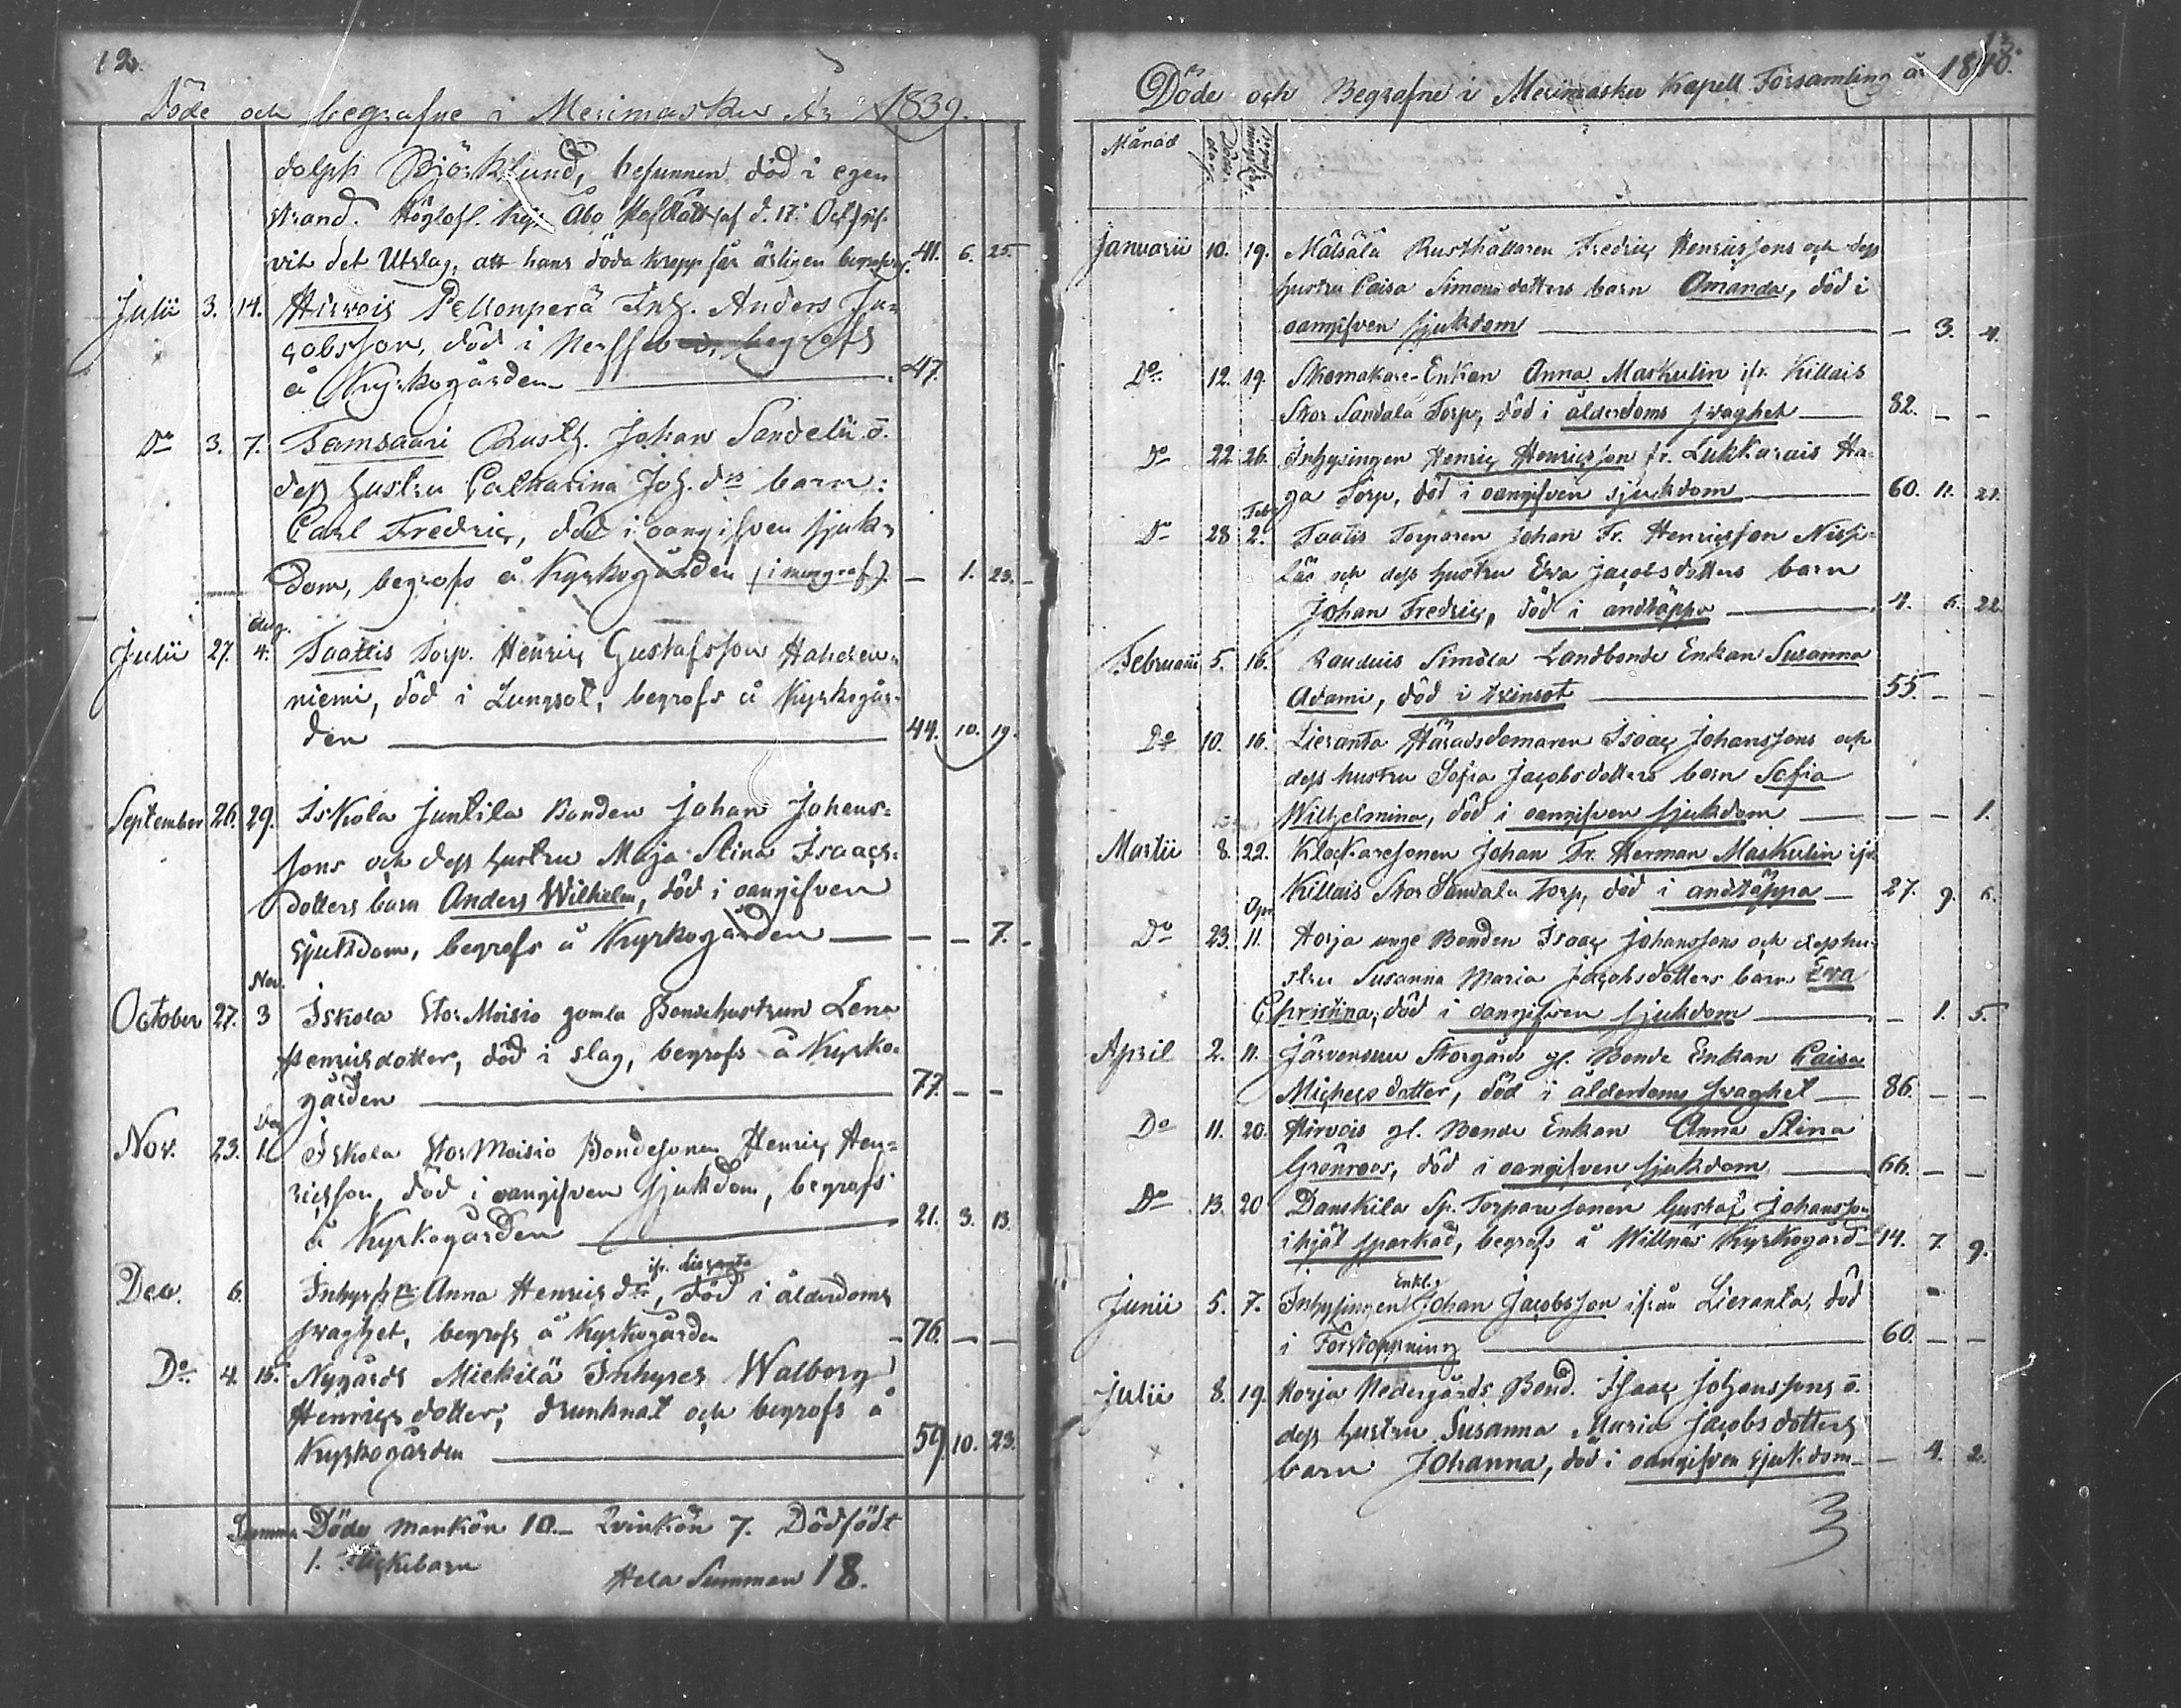 12.
Döde och begrafne i Merimasku År 1839.
dolph Björklund, befunnen död i egen
strand. Höglofl. Kejs. Åbo Hofrätt af d. 17. Oct.
vit det Utslag, att hans döda kropp får ärligen begrafvas. 41. 6. 25.
Julii 3. 14. Hirvois Pellonperä Inh. Anders Ja-
cobsson, död i begrofs
å Kyrkogården 47.
Do 3. 7. Tamsaari Rusth. Johan Sandelii o.
dess hustru Catharina Joh. drs barn:
Carl Fredric, död i oangifven sjuk-
dom, begrofs å Kyrkogården — 1. 23.
Aug.
Julii 27. 4. Taattis Torp. Henric Gustafsson
niemi, död i Lungsot, begrofs å Kyrkogår-
den 44. 10. 19.
September 26. 29. Iskola Juntila Bonden Johan Johans-
sons och dess hustru Maja Stina Isaacs-
dotters barn Anders Wilhelm, död i oangifven
sjukdom, begrofs å Kyrkogården — — 7.
Nov.
October 27. 3 Iskola Stor Moisio gamla Bondehustrun Lena
Henricsdotter, död i slag, begrofs å Kyrko-
gården 77. — —
Dec.
Nov. 23. 1. Iskola Stor Moisio Bondesonen Henric Hen-
ricsson, död i oangifven sjukdom, begrofs
å Kyrkogården 21. 3. 13.
ifr. Lieranta
Dec. 6. Inhys Anna Henrics dr, död i ålderdoms
svaghet, begrofs å Kyrkogården 76. — —
Do 4. 15. Nygårds Mickilä Inhyses Walborg
Henricsdotter, drunknat och begrofs å
Kyrkogården 59. 10. 23.
Summa Döde Mankön 10. Qvinkön 7. Dödfödt
1. Flickebarn Hela Summan 18.
13.
Döde och Begrafne i Merimasku Kapell Församling år 1840.
Månad Döds dag. Begrafnings dag.
Januarii 10. 19. Mälsälä Rusthållaren Fredric Henricssons och dess
hustru Caisa Simonsdotters barn Amanda, död i
oangifven sjukdom — 3. 4.
Do 12. 19. Skomakare-Enkan Anna Maskulin ifr. Killais
Stor Sandala Torp, död i ålderdoms svaghet 82. — —
Do 22. 26. Inhysingen Henric Henricsson fr. Lukkarais Ha-
ga Torp, död i oangifven sjukdom 60. 11. 21.
Feb.
Do 28 2. Taatis Torparen Johan Fr. Henricsson
och dess hustru Eva Jacobsdotters barn
Johan Fredric, död i andtäppa 4. 6. 22.
Februarii 5. 16. Simola Landbonde Enkan Susanna
Adami, död i tvinsot 55. — —
Do 10. 16. Lieranta Häradsdomaren Isaac Johanssons och
dess hustru Sofia Jacobsdotters barn Sofia
Wilhelmina, död i oangifven sjukdom — — 1.
Martii 8. 22. Klockaresonen Johan Fr. Herman Maskulin ifr.
Killais Stor Sandala Torp, död i andtäppa 27. 9. 6.
Apr.
Do 23. 11. Horja unge Bonden Isaac Johanssons och dess hu-
stru Susanna Maria Jacobsdotters barn Eva
Christina, död i oangifven sjukdom — 1. 5.
April 2. 11. Järvensuu Storgård gl. Bonde Enkan Caisa
Michelsdotter, död i ålderdoms svaghet 86. — —
Do 11. 20. Hirvois gl. Bonde Enkan Anna Stina
Grönroos, död i oangifven sjukdom 66. — —
Do 13. 20 Danskila Sp. Torparesonen Gustaf Johansson
ihjäl sparkad, begrofs å Willnäs Kyrkogård 14. 7. 9.
Enkl.
Junii 5. 7. Inhysingen Johan Jacobsson ifrån Lieranta, död
i Förstoppning 60. — —
Julii 8. 19. Horja Nedergårds Bond. Isaac Johanssons o.
dess hustru Susanna Maria Jacobsdotters
barn Johanna, död i oangifven sjukdom — 4. 2.